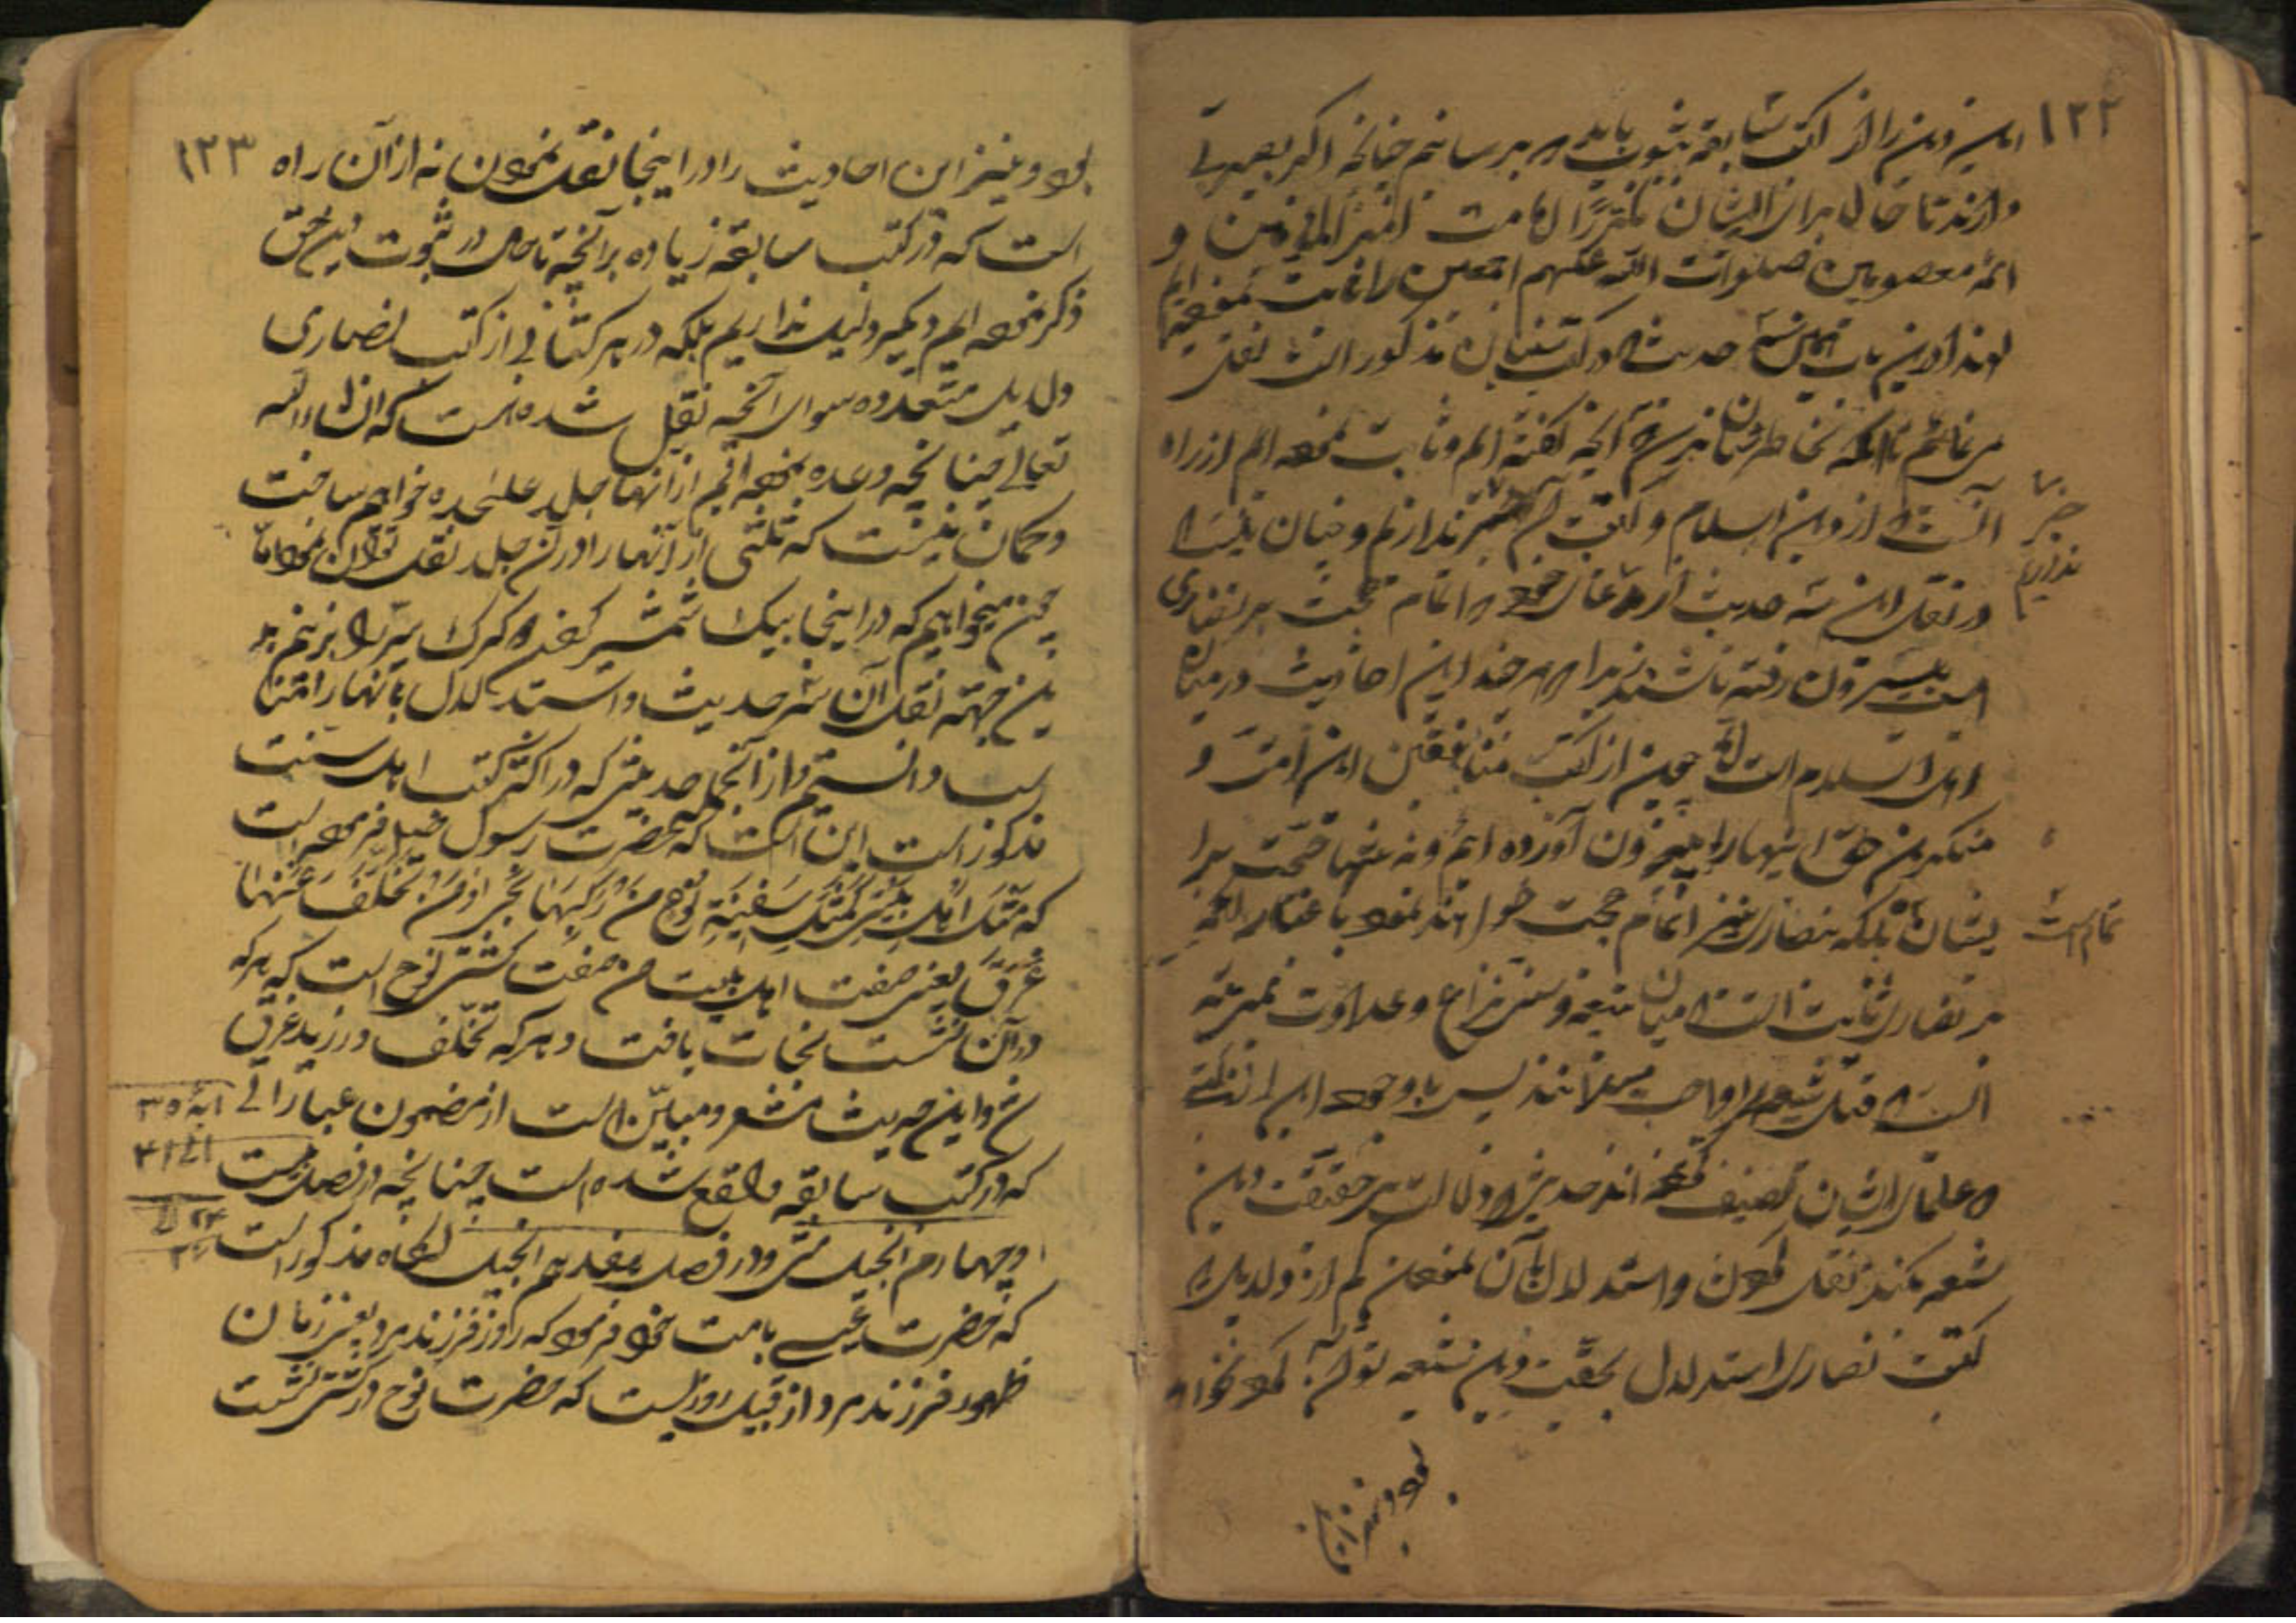 ۱۲۲
این دین را از کتب سابقه بثبوت باید که برسانم چنانچه اکر بصیرتی
دارند تا حال برای ایشان مکررا امامت امیر المؤمنین و
ائمه معصومین صلوات الله علیهم اجمعین را ثابت نموده ایم
لهذا درین باب همین سه حدیث که در کتب سنیان مذکور است نقل
می نمائیم تا آنکه بخاطر شان نرسد که آنچه کفته ایم و ثابت نموده ایم از راه
آنست که از دین اسلام و کتب آن خبر نداریم و چنان نیست که
خبر نداریم
در نقل این سه حدیث از مدعای خود که اتمام حجت بر نصاری
است بیرون رفته باشند زیرا که هر چند این احادیث در میان
اهل اسلام است اما چون از کتب منافقین این امت و
منکرین حق اینها را بیرون آورده ایم و نه تنها حجت برا
یشان بلکه بنصاری نیز اتمام حجت خواهند نمود باعتبار آنکه
تمام است
بر نصاری ثابت است که میان شیعه و سنی نزاع و عداوت بمرتبه
است که قتل شیعه را واجب میدانند پس با وجود این از کتبی
که علمای ایشان تصنیف نموده اند حدیثی که دلالت بر حقیقت دین
شیعه بکند نقل نمودن و استدلال بآن نمودن کم از دلایلی که
کتب نصاری استدلال بحقیت دین شیعه توان نمود نخواهد
بود و نیز این
۱۲۳
بود و نیز این احادیث را در اینجا نقل نمودن نه از آن راه
است که در کتب سابقه زیاده بر آنچه تا حال در ثبوت دین حق
ذکر نموده ایم دیگر دلیل نداریم بلکه در هر کتابی از کتب نصاری
دلایل متعدده سوای آنچه نقل شده هست که انشاء الله
تعالی چنانچه وعده نموده ایم از آنها جلد علیحده خواهم ساخت
و کمان نیست که ثلثی از آنها را در آن جلد نقل توان نمود اما
چون میخواهیم که در اینجا بیک شمشیر کفتار و کرک سر را بزنیم بد
ین جهته نقل آن سه حدیث و استدلال بانها را متنا
سب دانستیم و از آنجمله حدیثی که در اکثر کتب اهل سنت
مذکور است این است که حضرت رسول صلی فرموده است
که مَثَل اهل بیتی کَمَثَلِ سَفِینَةِ نوح مَن رَکِبَهَا نَجَی وَ مَن تَخَلَّفَ عَنهَا
غَرَقَ یعنی صفت اهل بیت من صفت کشتی نوح است که هر که
در آن نشست نجات یافت و هر که تخلّف ورزید غرق
شد و این حدیث مشعر و مبیّن است از مضمون عباراتی
آیهٔ ۳۵
که در کتب سابقه واقع شده است چنانچه در فصل بیست
و چهارم انجیل متی و در فصل هفدهم انجیل لوقاه مذکور است
که حضرت عیسی بامت خود فرمود که روز فرزند مرد یعنی زمان
ظهور فرزند مرد از قبیل روزیست که حضرت نوح در کشتی نشست